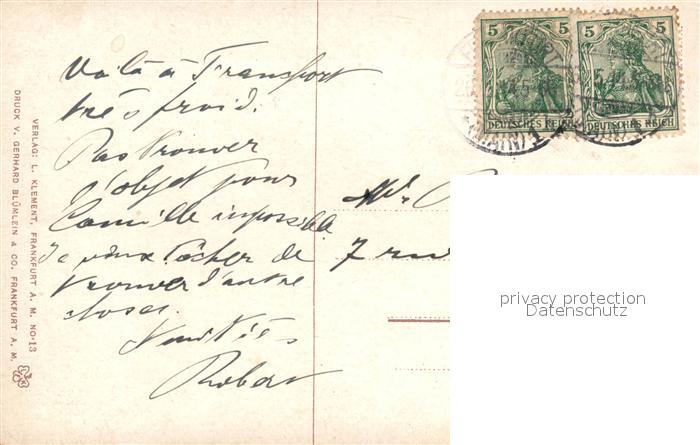 Voilà à Transport
très froid.
Pas trouver
l'objet pour
Camille impossible
Je veux tâcher de
trouver d'autre
choses.
Robert
Mr
7 rue
5 5
DEUTSCHES REICH
5 5
DEUTSCHES REICH
(MAIN) 1
privacy protection
Datenschutz
VERLAG: L. KLEMENT, FRANKFURT A. M. NO. 13
DRUCK V. GERHARD BLÜMLEIN & CO. FRANKFURT A. M.